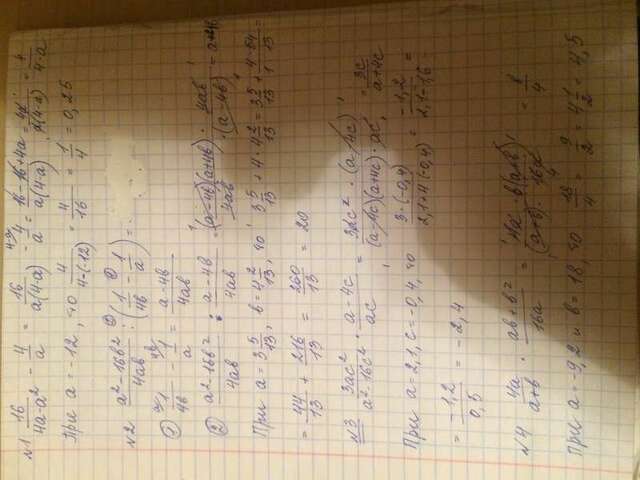 №1 16/(4a-a²) - 4/a = 16/(a(4-a)) - 4-a/ 4/a = (16-16+4a)/(a(4-a)) = 4a/(a(4-a)) = 4/(4-a)
При a = -12, то 4/(4-(-12)) = 4/16 = 1/4 = 0,25
№2 (a²-16b²)/(4ab) : (1/(4b) - 1/a) =
① 1/(4b) - 1/a = (a-4b)/(4ab)
② (a²-16b²)/(4ab) : (a-4b)/(4ab) = ((a-4b)(a+4b))/(4ab) · 4ab/(a-4b) = a+4b
При a = 3 5/13, b = 4 2/13, то 3 5/13 + 4·4 2/13 = 3 5/13 + (4·54)/(1·13) =
= 44/13 + 216/13 = 260/13 = 20
№3 3ac²/(a²-16c²) · (a-4c)/(ac) = (3ac² · (a-4c))/((a-4c)(a+4c)·ac) = 3c/(a+4c)
При a = 2,1, c = -0,4, то (3·(-0,4))/(2,1+4·(-0,4)) = -1,2/(2,1-1,6) =
= -1,2/0,5 = -2,4
№4 4a/(a+b) · (ab+b²)/(16a) = (4a · b(a+b))/((a+b) · 16a) = b/4
При a = -9,2 и b = 18, то 18/4 = 9/2 = 4 1/2 = 4,5